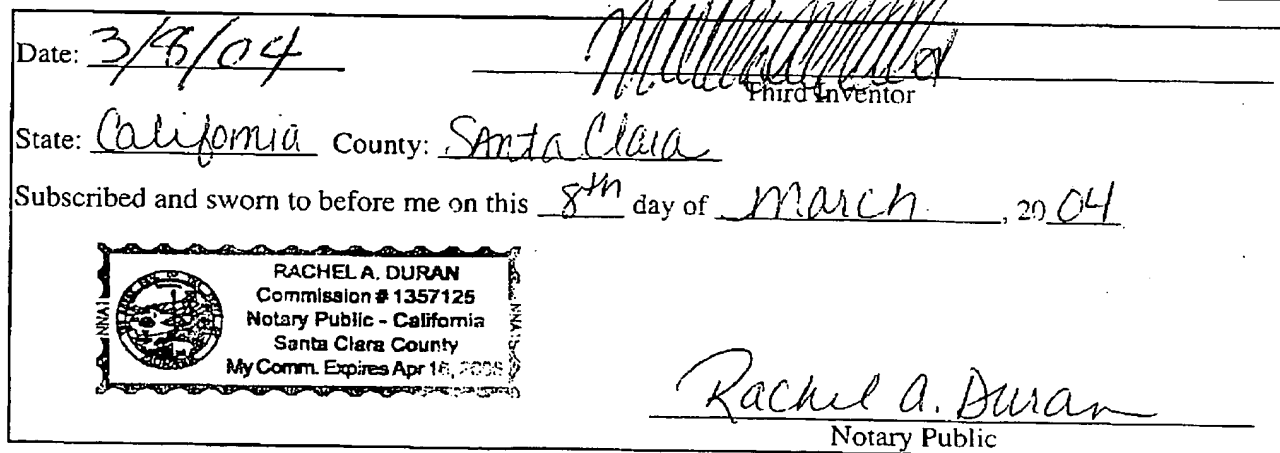 Date: 3/8/04
Third Inventor
State: California County: Santa Clara
Subscribed and sworn to before me on this 8th day of March, 20 04
RACHEL A. DURAN
Commission # 1357125
Notary Public - California
Santa Clara County
My Comm. Expires Apr 16,
NNA1
NNA1
Rachel A. Duran
Notary Public